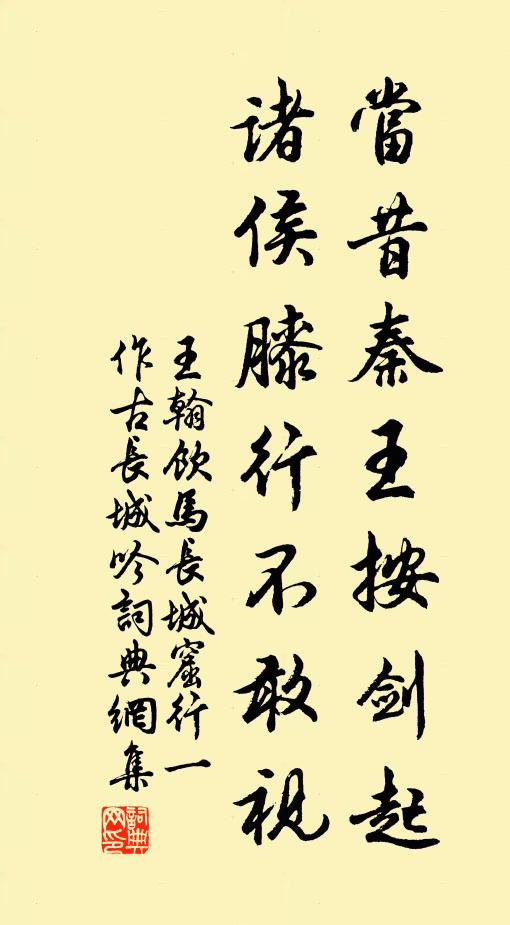 當昔秦王按剑起
诸侯膝行不敢視
王翰飲馬長城窟行一
作古長城吟詞典網集
詞典
网印